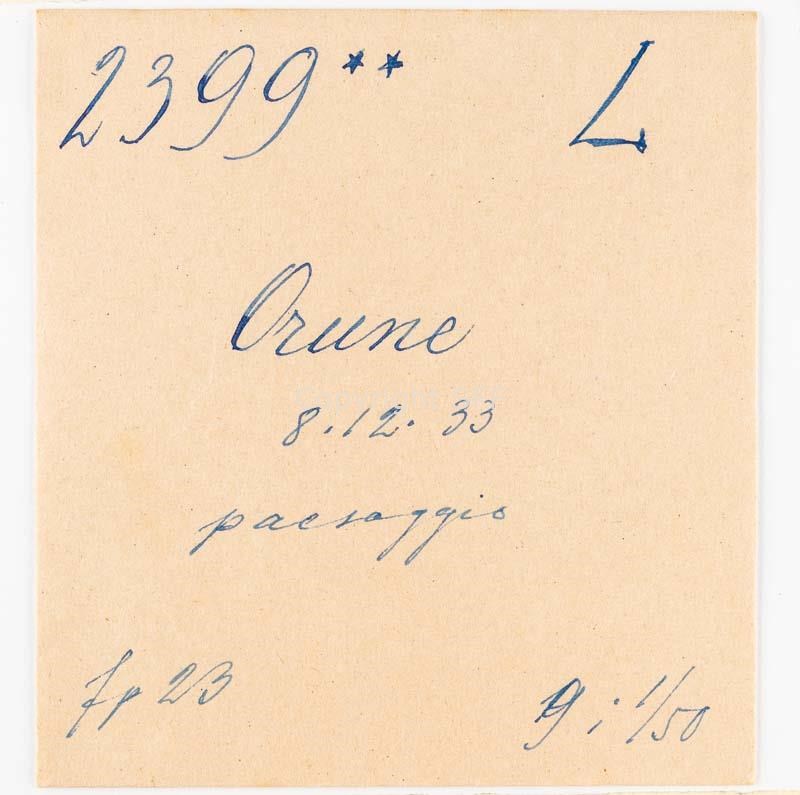 2399** L
Orune
8.12.33
paesaggio
fp 23
9 i 1/50